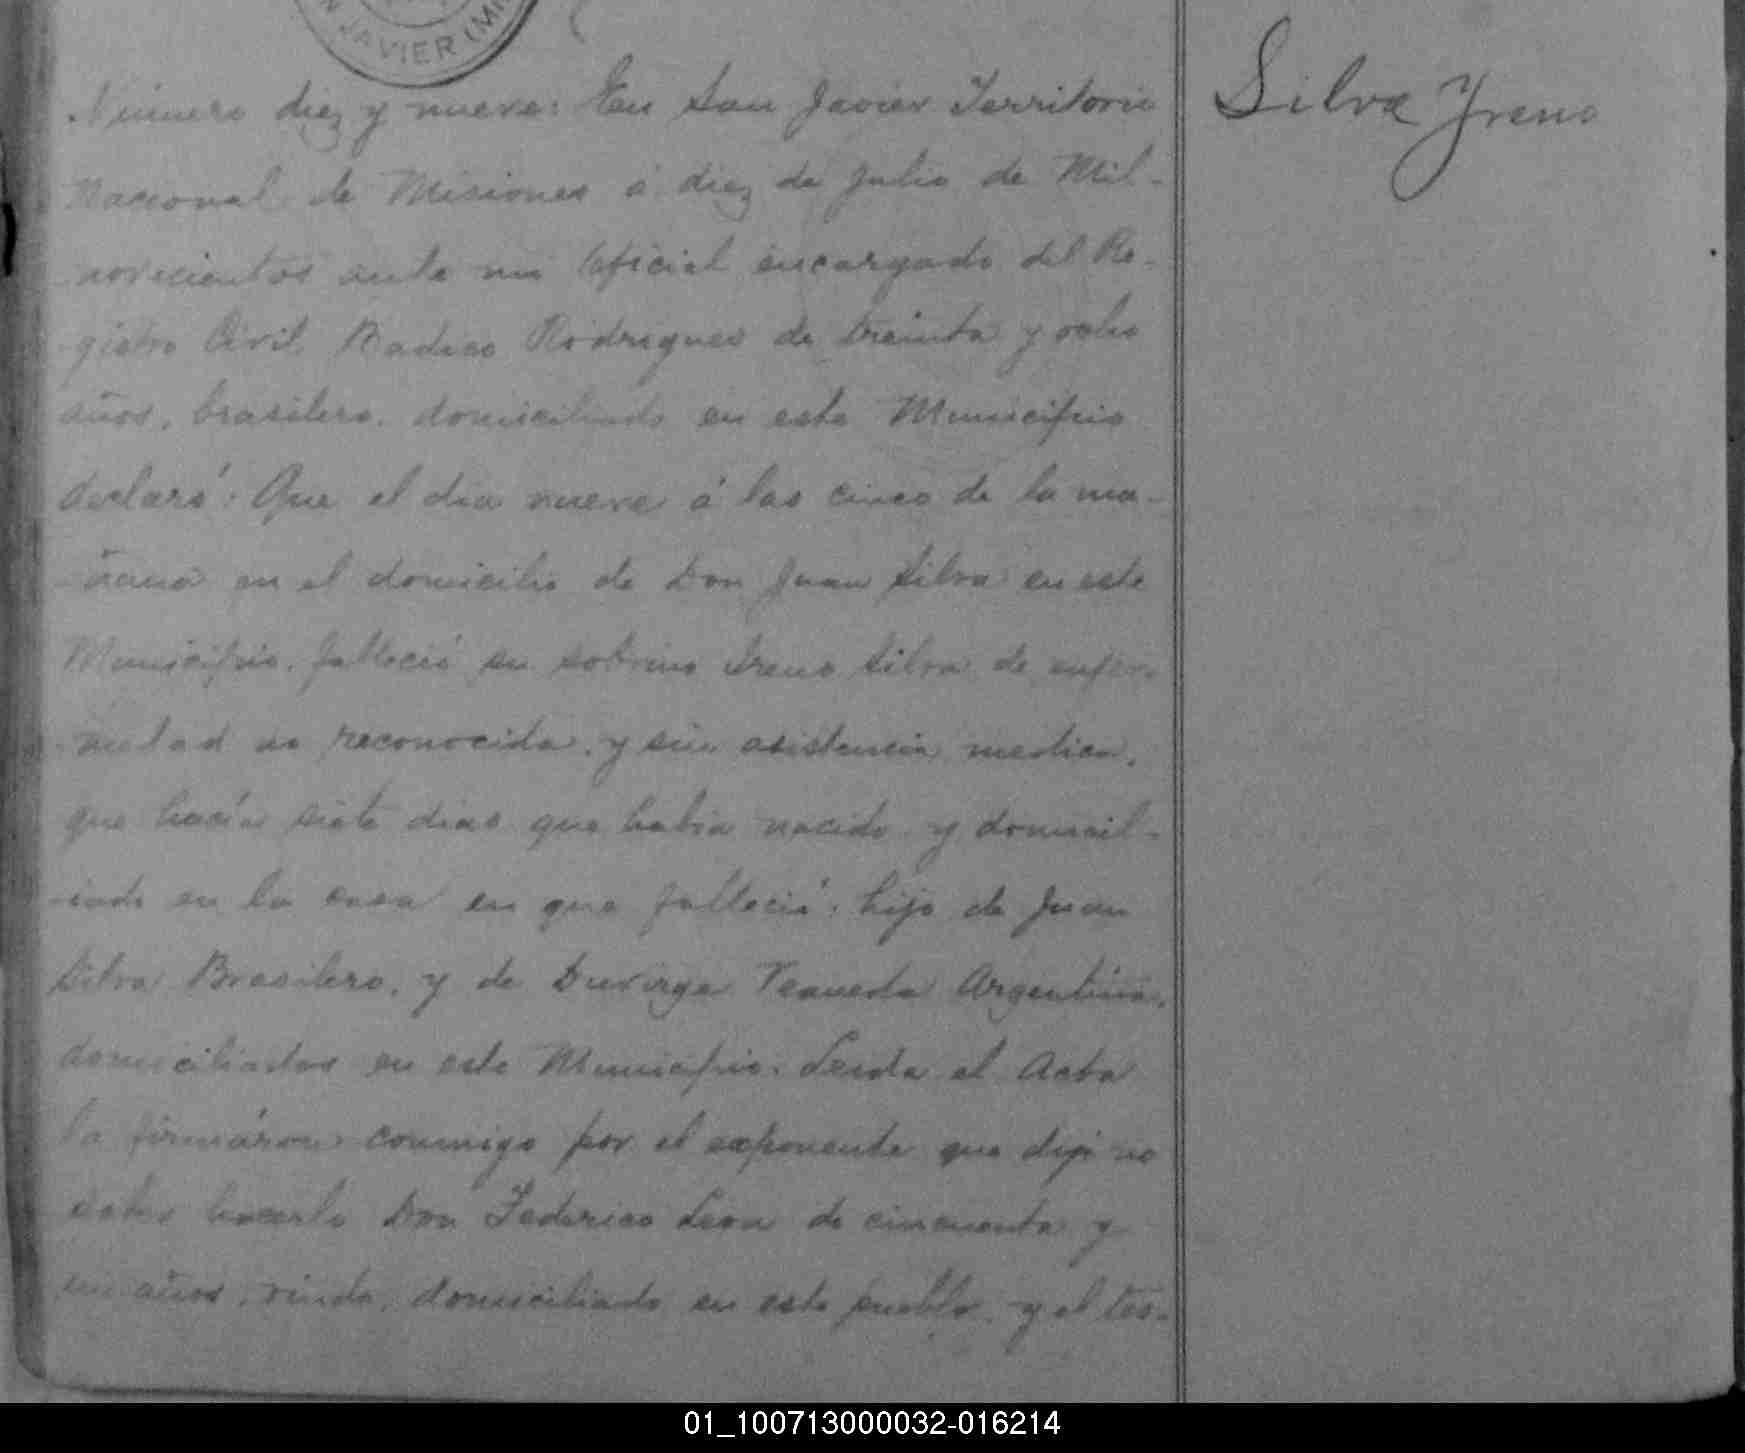 N JAVIER (MI
Silva Yreno
Número diez y nueve: En San Javier Territorio
Nacional de Misiones á diez de Julio de Mil-
novecientos ante mi Oficial encargado del Re-
gistro Civil, Rodrigues de treinta y ocho
años, brasilero, domiciliado en este Municipio
declaró: Que el dia nueve á las cinco de la ma-
-ñana en el domicilio de Don Juan Silva en este
Municipio, falleció su sobrino Ireno Silva de enfer-
-medad no reconocida, y sin asistencia medica,
que hacía siete dias que habia nacido y domicil-
-iado en la casa en que falleció; hijo de Juan
Silva Brasilero, y de Argentina,
domiciliados en este Municipio. Leida el Acta
la firmáron conmigo por el exponente que dijo no
saber hacerlo Don Federico Leon de cincuenta y
un años, viudo, domiciliado en este pueblo, y el tes-
01_100713000032-016214